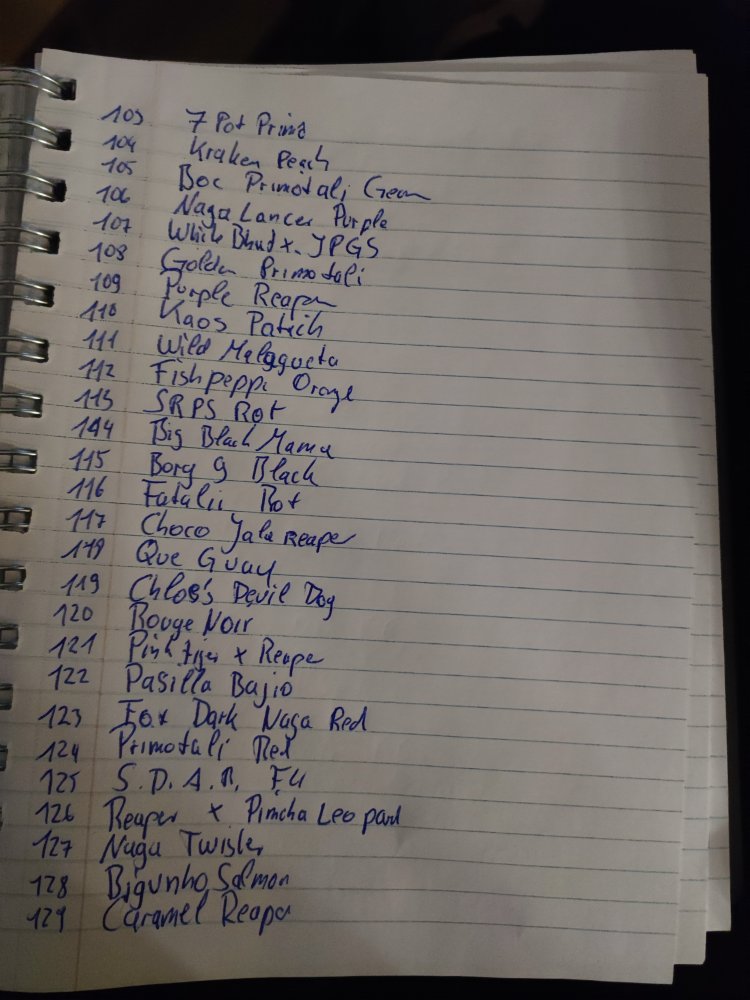 103 7 Pot Primo
104 Kraken Peach
105 Boc Primotali Cream
106 Naga Lancer Purple
107 White Bhut x JPGS
108 Golden Primotali
109 Purple Reaper
110 Kaos Patich
111 Wild Malagueta
112 Fishpeppi Orange
113 SRPS Rot
114 Big Black Mama
115 Borg 9 Black
116 Fatalii Rot
117 Choco Jala Reaper
118 Que Guay
119 Chloe's Devil Dog
120 Rouge Noir
121 Pink Tiger x Reaper
122 Pasilla Bajio
123 Fox Dark Naga Red
124 Primotali Red
125 S.D.A.R. F4
126 Reaper x Pimcha Leopard
127 Naga Twister
128 Bigunho Salmon
129 Caramel Reaper